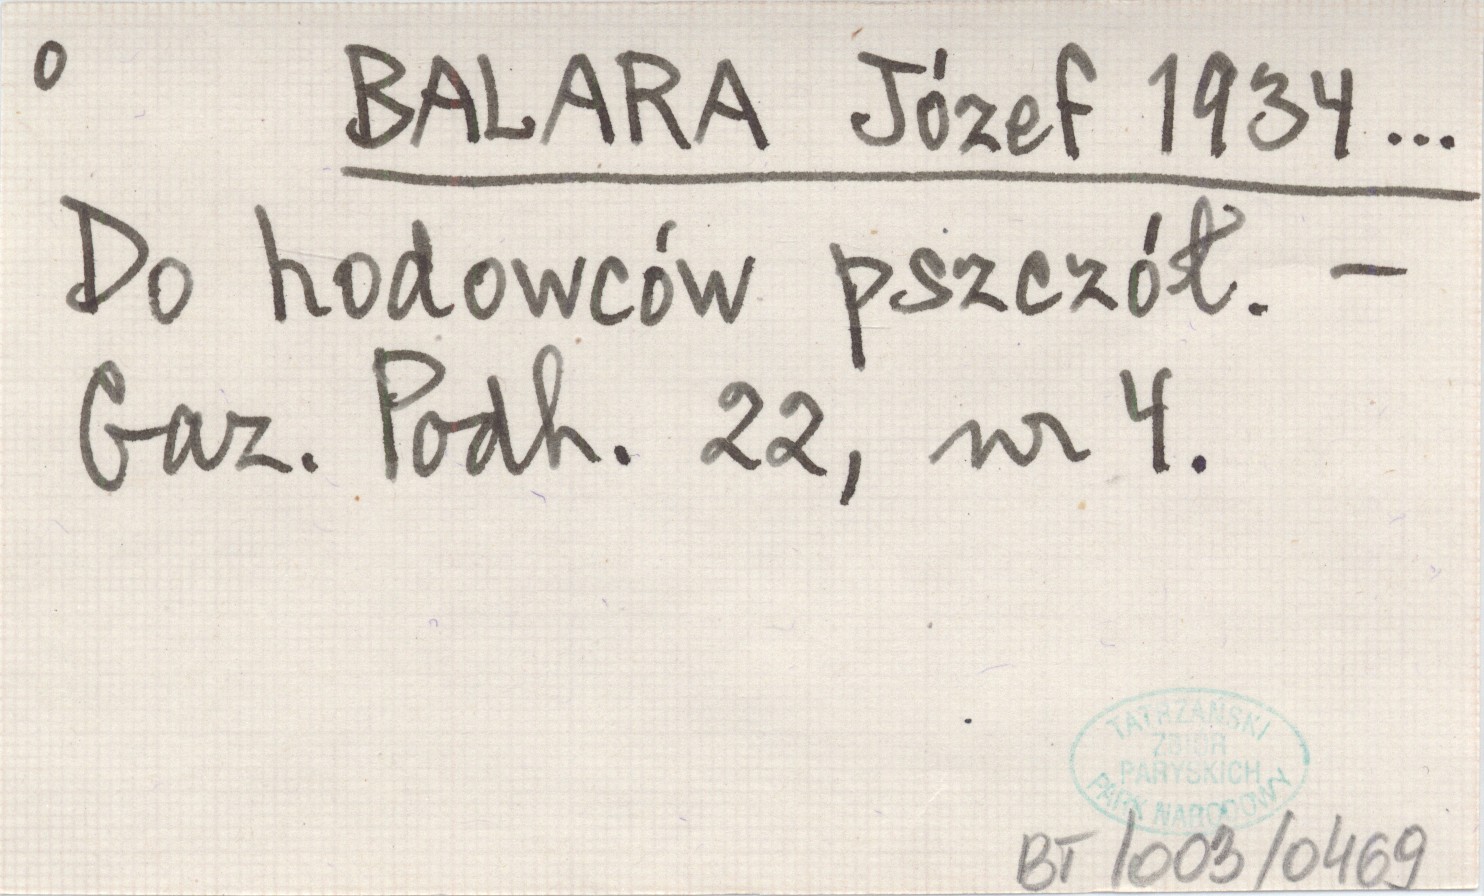 o BALARA Józef 1934...
Do hodowców pszczół. -
Gaz. Podh. 22, nr 4.
TATRZAŃSKI
ZBIÓR
PARYSKICH
PARK NARODOWY
BT 1003/0469